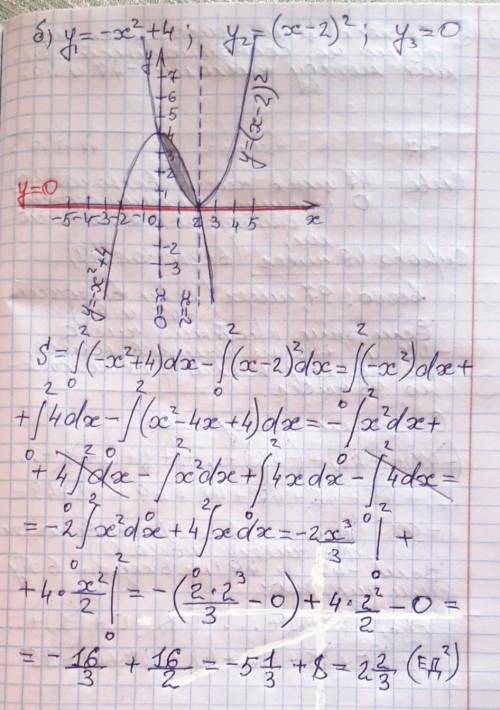 б) y₁ = -x² + 4; y₂ = (x-2)²; y₃ = 0
y
7
6
5
4
3
2
1
y=(x-2)²
y=0
-5 -4 -3 -2 -1 0 1 2 3 4 5 x
-2
-3
y=-x²+4
x=0
x=2
S = ∫₀²(-x²+4)dx - ∫₀²(x-2)²dx = ∫₀²(-x²)dx +
+ ∫₀²4dx - ∫₀²(x²-4x+4)dx = -∫₀²x²dx +
+ 4∫₀²dx - ∫₀²x²dx + ∫₀²4xdx - ∫₀²4dx =
= -2∫₀²x²dx + 4∫₀²xdx = -2x³/3 |₀² +
+ 4·x²/2 |₀² = -(2·2³/3 - 0) + 4·2²/2 - 0 =
= -16/3 + 16/2 = -5 1/3 + 8 = 2 2/3 (ЕД²)